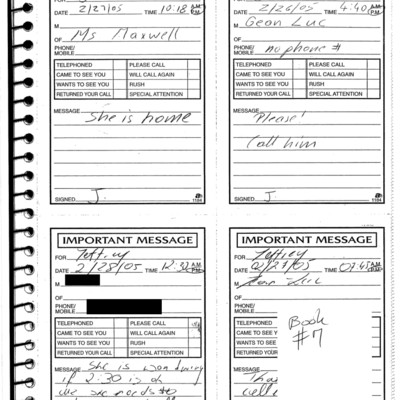 DATE 2/27/05 TIME 10:18 AM PM
M
OF Ms Maxwell
PHONE/
MOBILE
TELEPHONED PLEASE CALL
CAME TO SEE YOU WILL CALL AGAIN
WANTS TO SEE YOU RUSH
RETURNED YOUR CALL SPECIAL ATTENTION
MESSAGE She is home
SIGNED J.
1184
DATE 2/26/05 TIME 4:40 AM PM
M Gean Luc
OF
PHONE/
MOBILE no phone #
TELEPHONED PLEASE CALL
CAME TO SEE YOU WILL CALL AGAIN
WANTS TO SEE YOU RUSH
RETURNED YOUR CALL SPECIAL ATTENTION
MESSAGE Please!
Call him
SIGNED J
1184
IMPORTANT MESSAGE
FOR Jeffrey
DATE 2/28/05 TIME 12:32 AM PM
M
OF
PHONE/
MOBILE
TELEPHONED PLEASE CALL
CAME TO SEE YOU WILL CALL AGAIN
WANTS TO SEE YOU RUSH
RETURNED YOUR CALL SPECIAL ATTENTION
MESSAGE She is wondering
if 2:30 is ok
needs to
IMPORTANT MESSAGE
FOR Jeffrey
DATE 2/27/05 TIME 07:45 AM PM
M Luc
OF
PHONE/
MOBILE
TELEPHONED
CAME TO SEE Y
WANTS TO SEE Y
RETURNED YOUR
Book
#7
MESSAGE